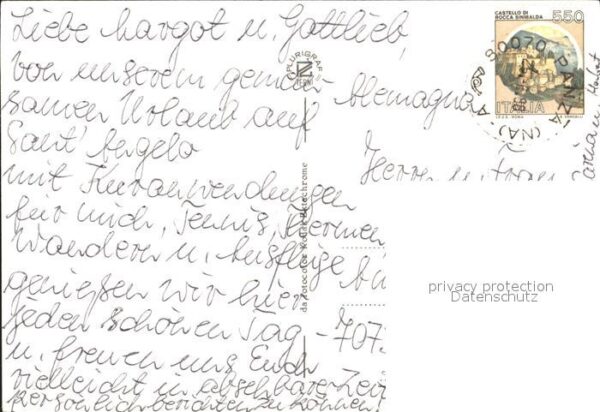 Liebe Margot u. Gottlieb
von unserem gemein-
samen Urlaub auf
Sant' Angelo
mit Kuranwendungen
für mich, Tennis, Thermen
Wandern u. Ausflüge
genießen wir hier
jeden schönen Tag -
u. freuen uns Euch
vielleicht in absehbarer Zeit
persönlich berichten zu können!
PLURIGRAF
da Fotocolor Kodak Ektachrome
Alemagna
Herrn u. Frau
707
CASTELLO DI
ROCCA SINIBALDA
550
ITALIA
80070 PANZA (NA)
privacy protection
Datenschutz